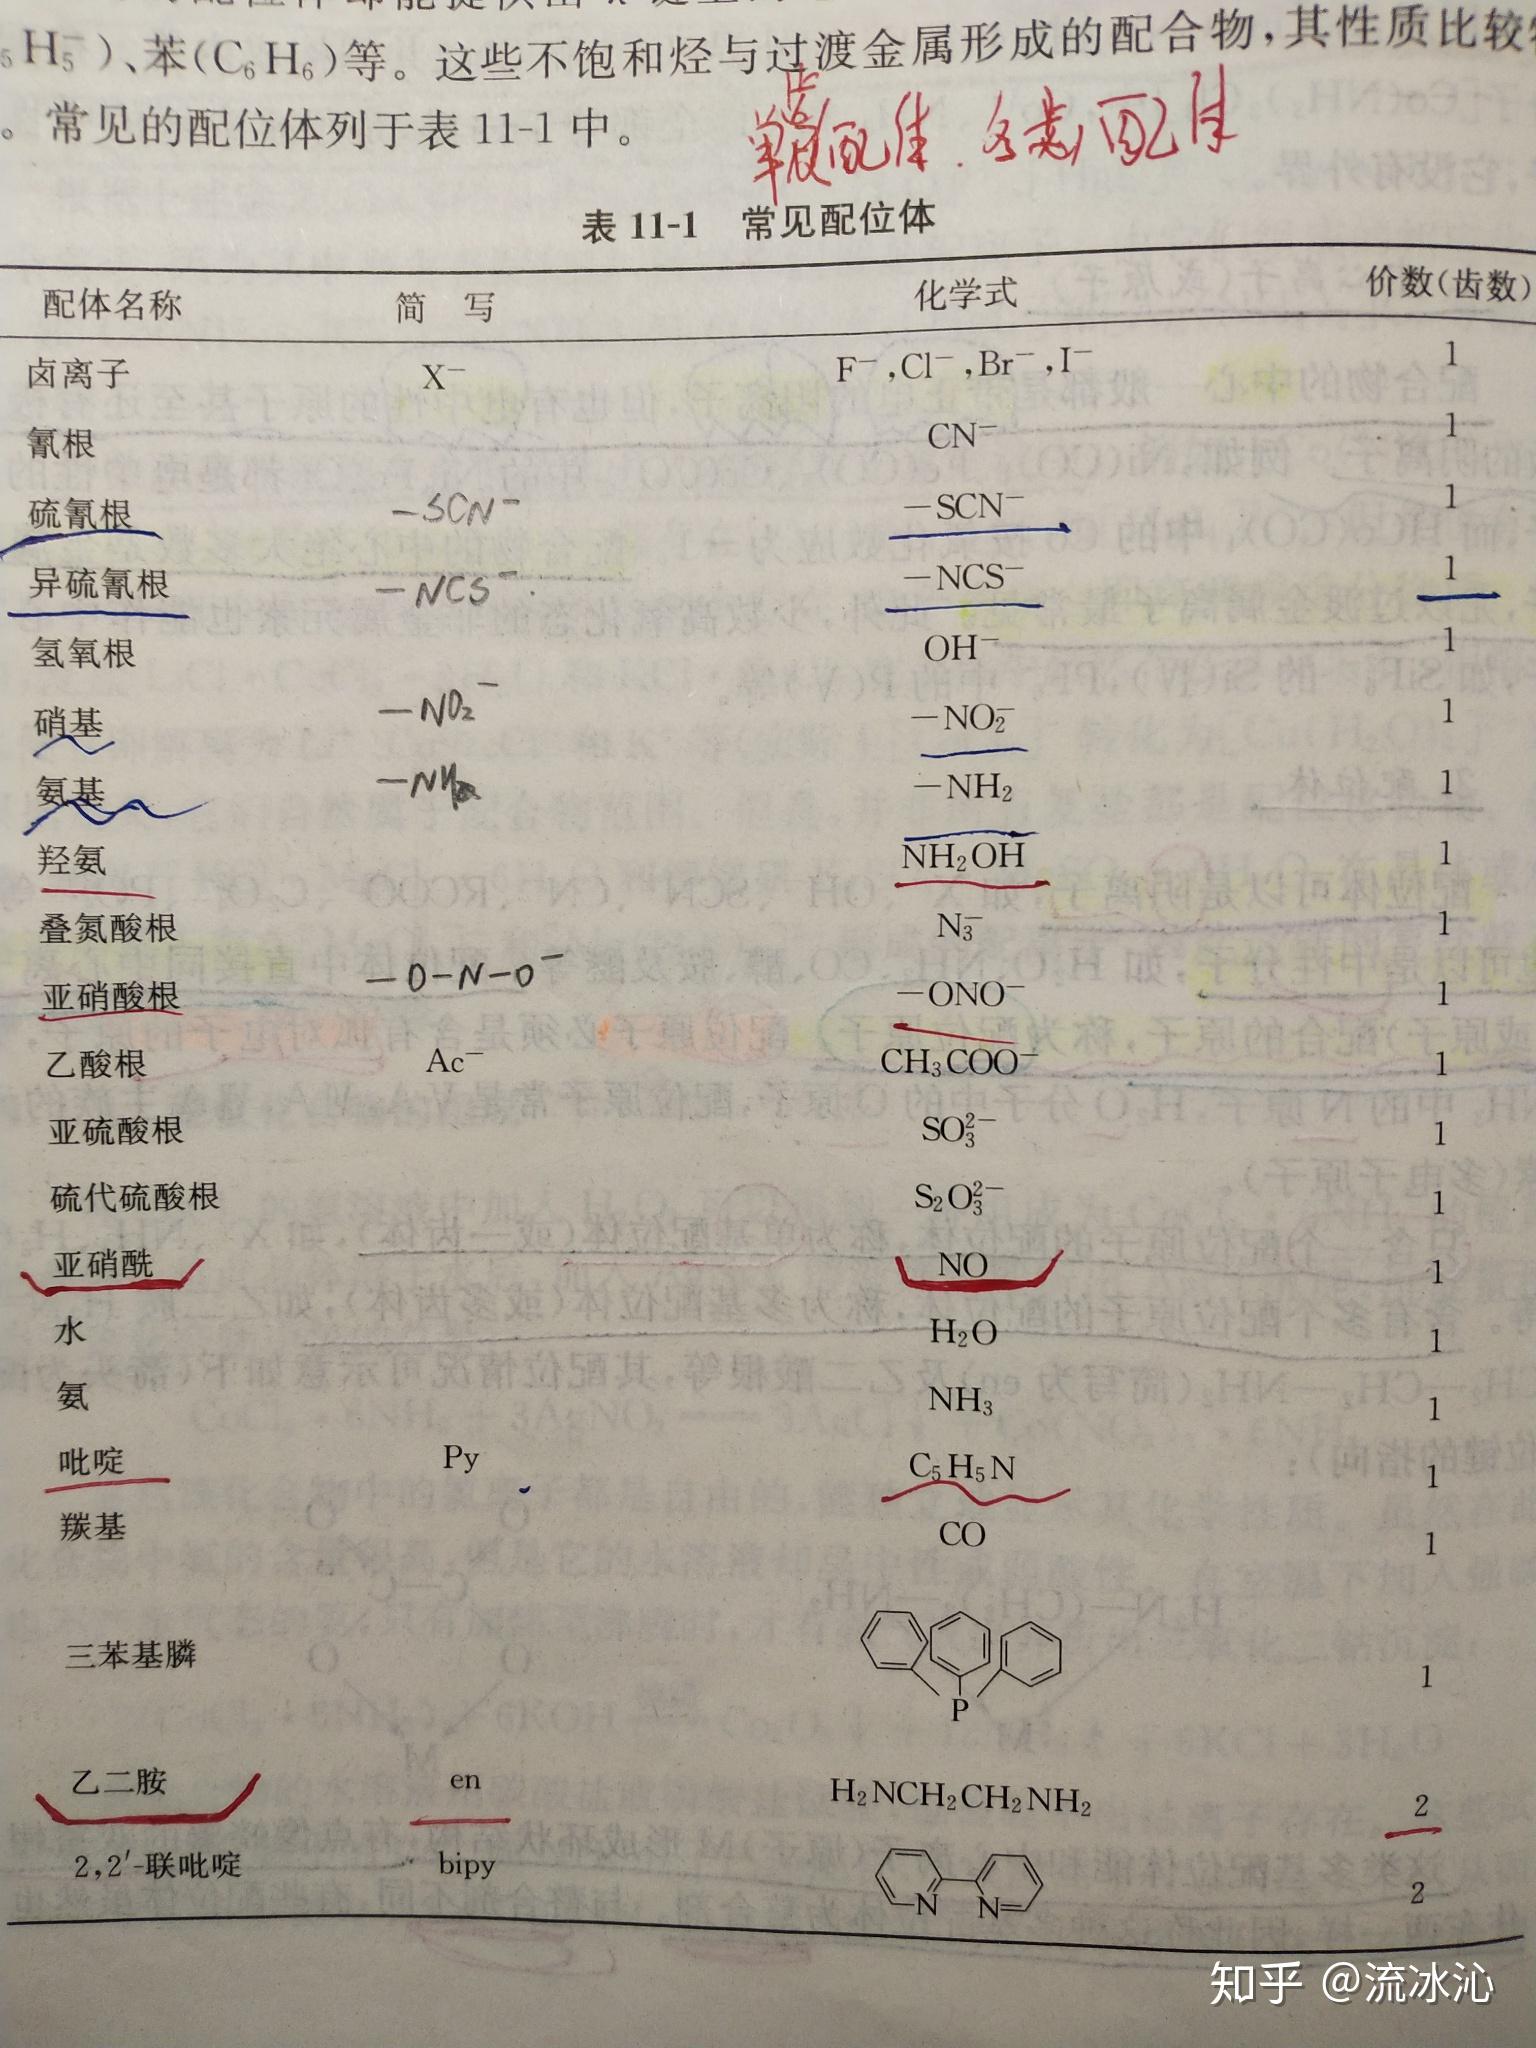 H₅⁻)、苯(C₆H₆)等。这些不饱和烃与过渡金属形成的配合物,其性质比较
。常见的配位体列于表 11-1 中。
齿
单 配体. 各类 配体
表 11-1 常见配位体
配体名称 简 写 化学式 价数(齿数)
卤离子 X⁻ F⁻,Cl⁻,Br⁻,I⁻ 1
氰根 CN⁻ 1
硫氰根 —SCN⁻ —SCN⁻ 1
异硫氰根 —NCS⁻ —NCS⁻ 1
氢氧根 OH⁻ 1
硝基 —NO₂⁻ —NO₂⁻ 1
氨基 —NH₂ —NH₂ 1
羟氨 NH₂OH 1
叠氮酸根 N₃⁻ 1
亚硝酸根 —O—N—O⁻ —ONO⁻ 1
乙酸根 Ac⁻ CH₃COO⁻ 1
亚硫酸根 SO₃²⁻ 1
硫代硫酸根 S₂O₃²⁻ 1
亚硝酰 NO 1
水 H₂O 1
氨 NH₃ 1
吡啶 Py C₅H₅N 1
羰基 CO 1
三苯基膦 P 1
乙二胺 en H₂NCH₂CH₂NH₂ 2
2,2′-联吡啶 bipy N N 2
知乎 @流冰沁